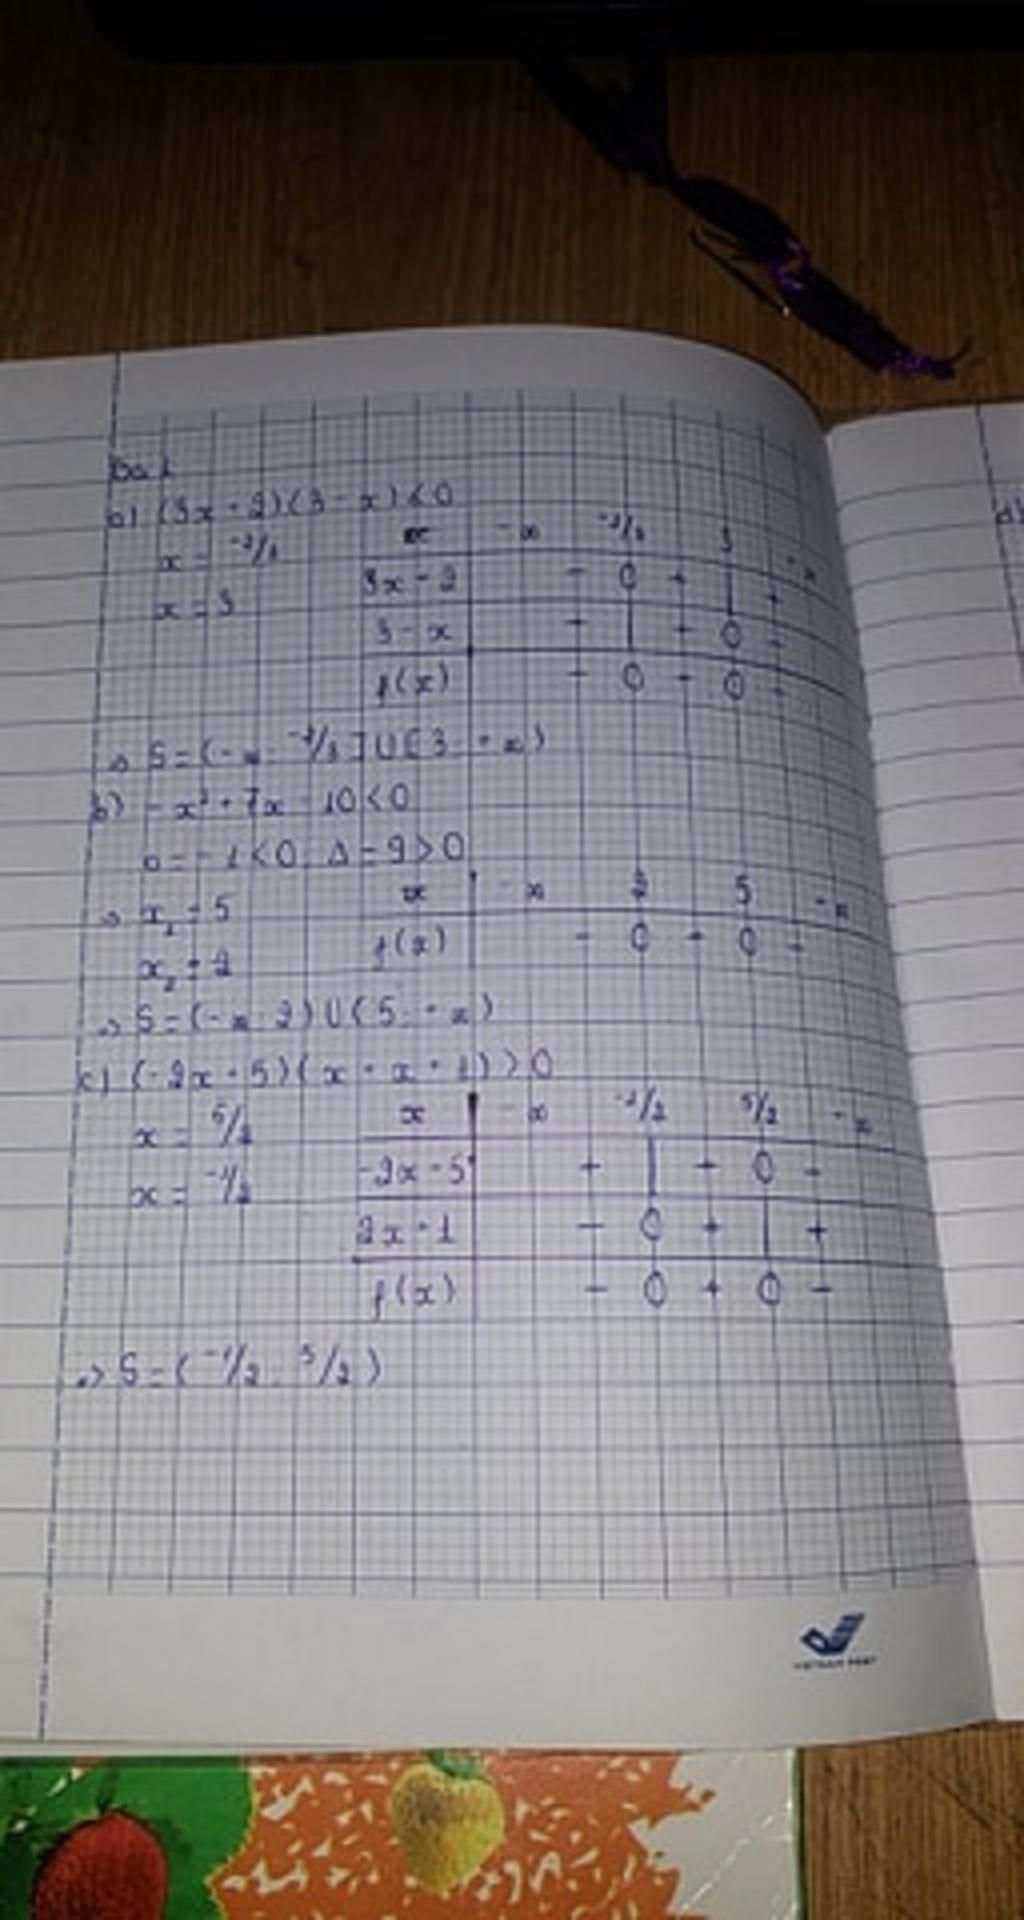 Bài 1
a) (3x + 2)(3 - x) ≤ 0
x = -2/3
x = 3
x -∞ -2/3 3 +∞
3x + 2 - 0 + | +
3 - x + | + 0 -
f(x) - 0 + 0 -
=> S = (-∞; -2/3] ∪ [3; +∞)
b) -x² + 7x - 10 < 0
a = -1 < 0, Δ = 9 > 0
=> x₁ = 5
x₂ = 2
x -∞ 2 5 +∞
f(x) - 0 + 0 -
=> S = (-∞; 2) ∪ (5; +∞)
c) (-2x + 5)(x + x + 1) > 0
x = 5/2
x = -1/2
x -∞ -1/2 5/2 +∞
-2x + 5 + | + 0 -
2x + 1 - 0 + | +
f(x) - 0 + 0 -
=> S = (-1/2; 5/2)
VIETNAM POST